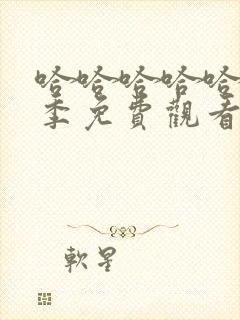 哈哈哈哈哈
季免費觀看
軟星